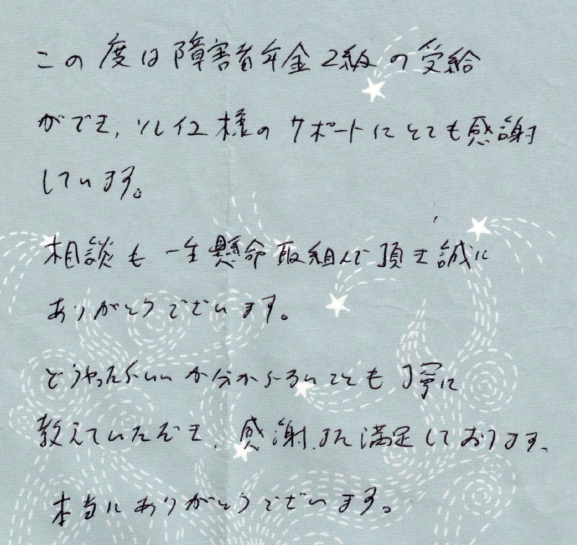 この度は障害者年金2級の受給
ができ、ソレイユ様のサポートにとても感謝
しています。
相談も一生懸命取組んで頂き誠に
ありがとうございます。
どうやったらいいか分からないことも丁寧に
教えていただき、感謝、また満足しております。
本当にありがとうございます。